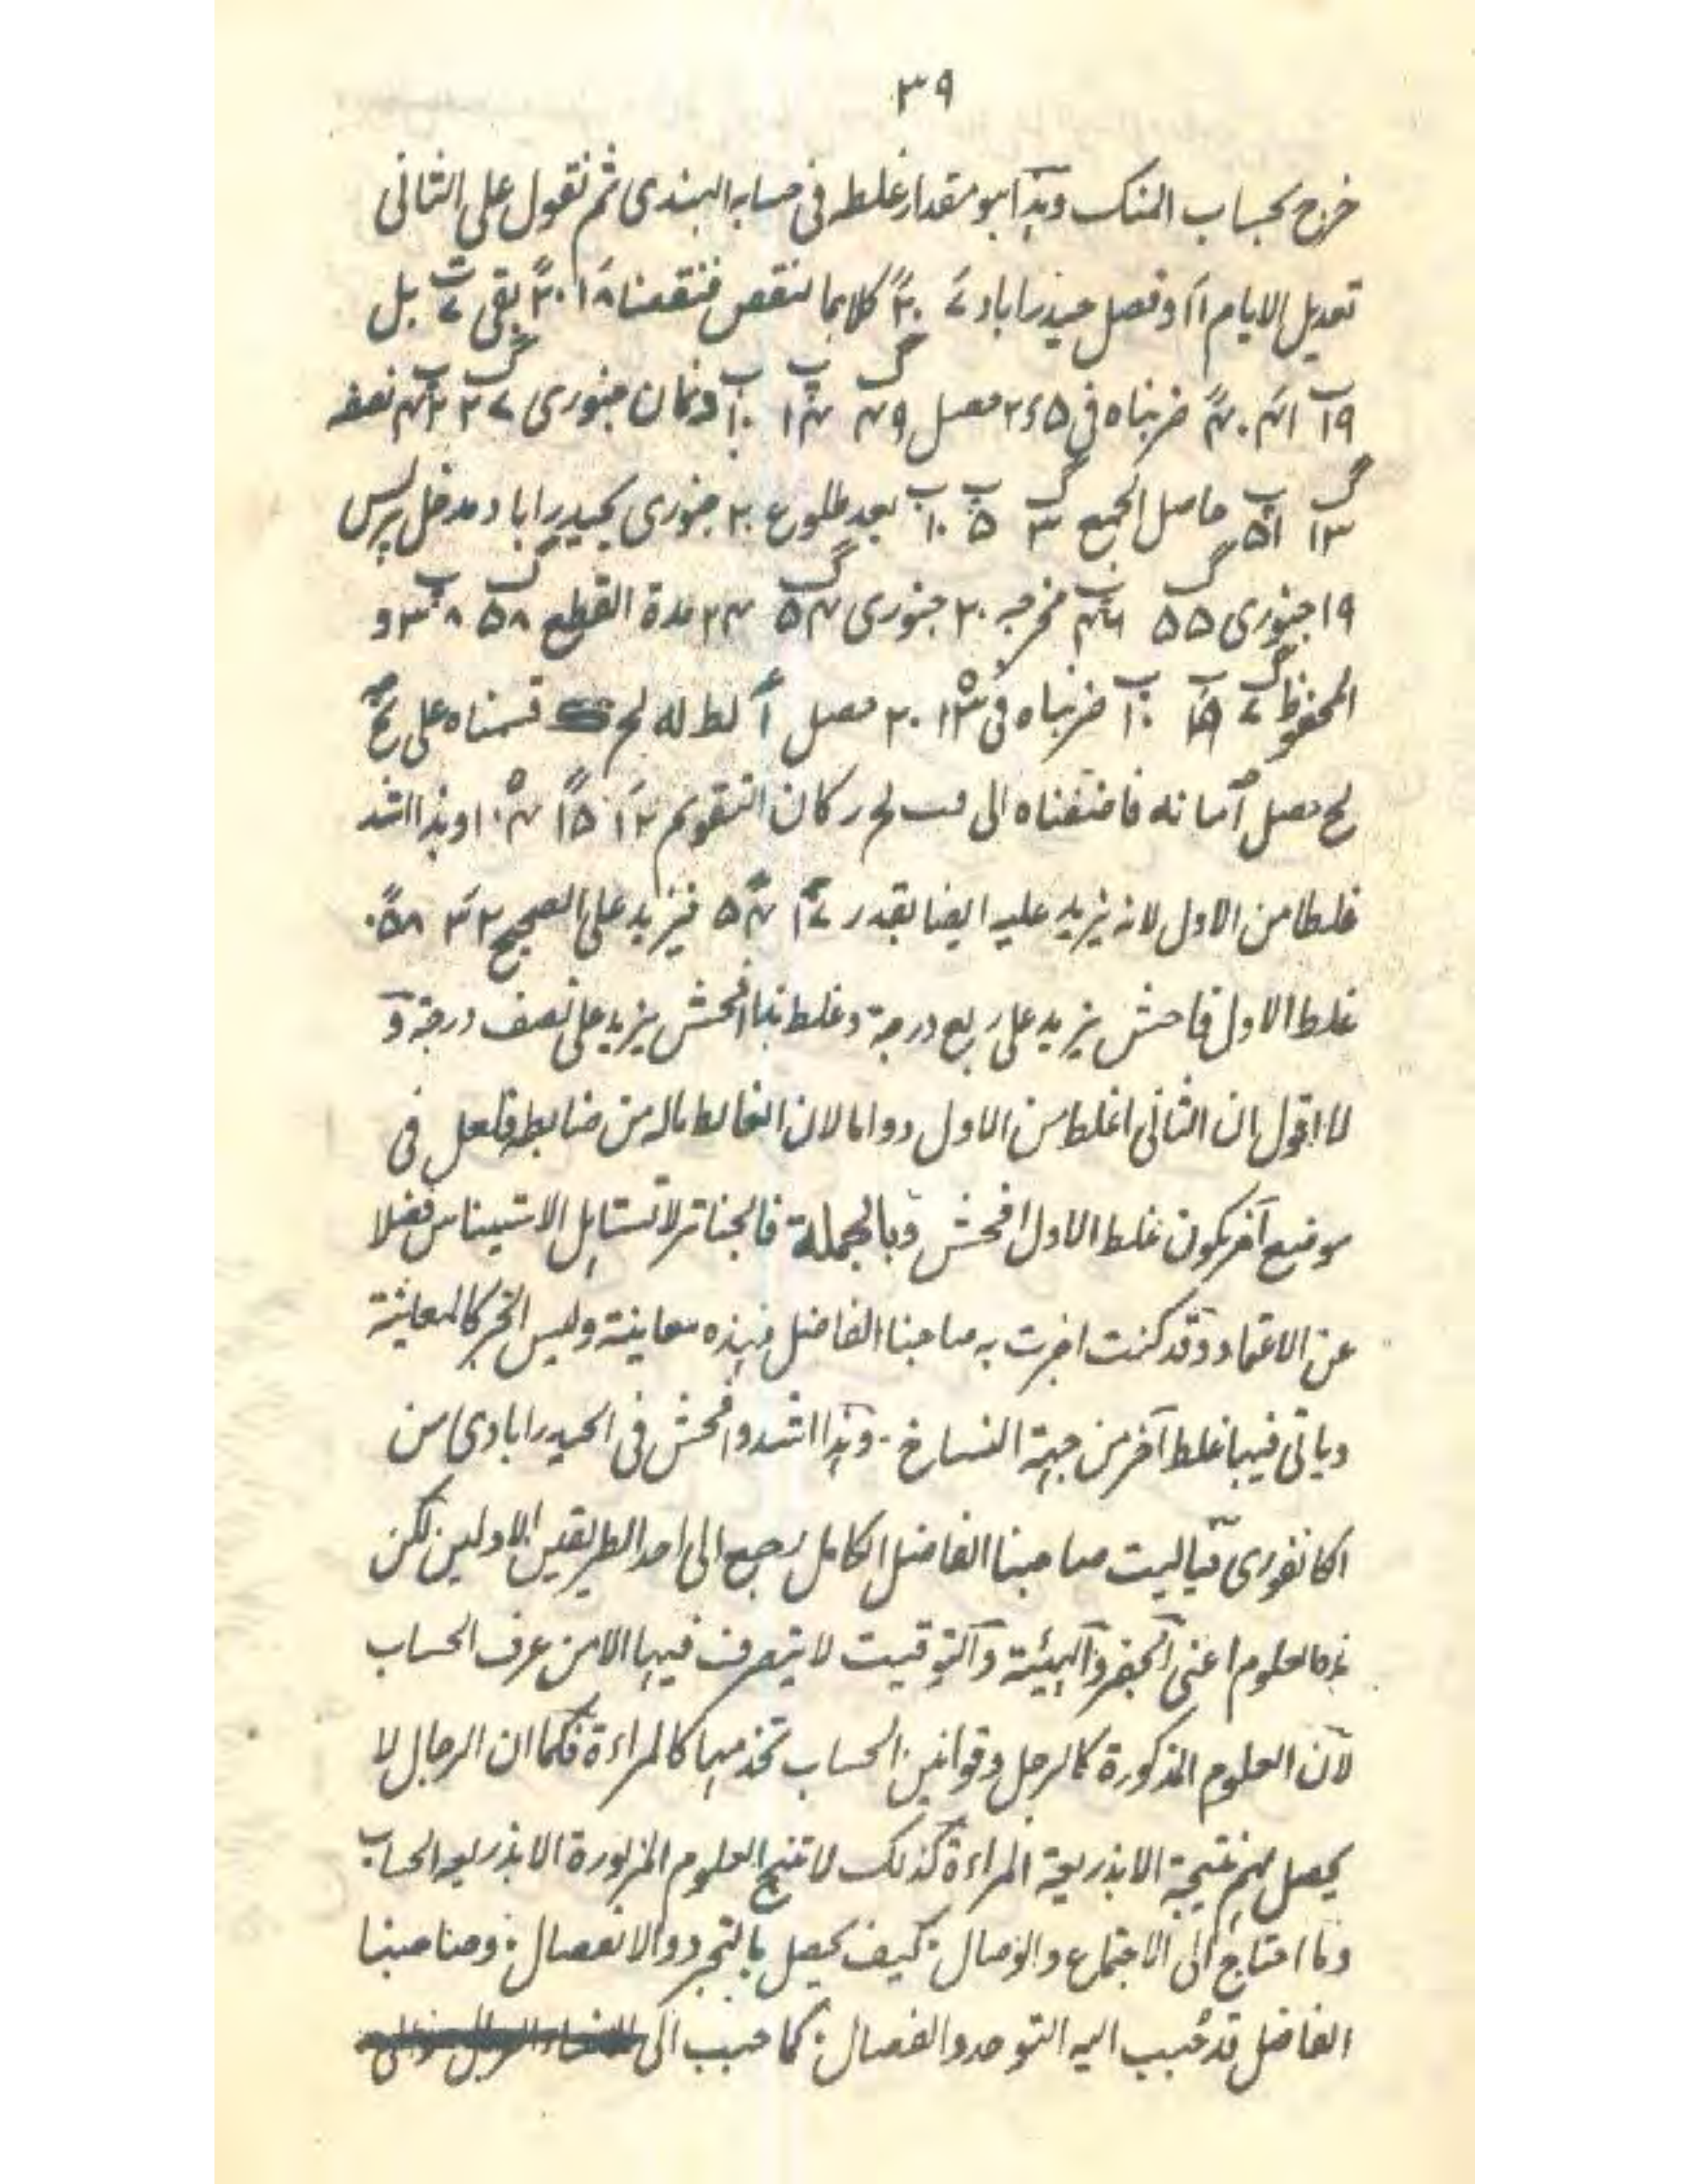 ٣٩
خرج بحساب المنك وہذا ہو مقدار غلطه فی حسابہ الہندی ثم نقول علی الثانی
تعدیل الایام ١١ وفصل حیدراباد ٧ ٣٠ کلاہما تنقص فنقصنا ١٨ ٣٠ بقی ٧ بل
١٩ ٤١ ٤٠ ضربناہ فی ٢٫٥ حصل ٤٩ ١٤ ١٠ وکان جنوری ٢٧ ٤٢ نصفہ
١٣ ٥١ حاصل الجمع ٣ ٥ ١٠ بعد طلوع ٢٠ جنوری بحیدراباد ومدخل پرس
١٩ جنوری ٥٥ ٤٦ مخرجہ ٢٠ جنوری ٥٤ ٢٤ مدة القطع ٥٨ ٨ ٣ و
المحفوظ ٧ ١٠ ضربناہ فی ١٣ ٢٠ حصل أ لط له لح قسمناہ علی نح
لح حصل فاضفناہ الی لح رکان التقویم ١٢ ١٥ ١٠٤ وہذا اشد
غلطا من الاول لانہ یزید علیہ ایضا بقدر ١٧ ٥٤ فیزید علی الصحیح ٣٢ ٥٨
غلط الاول فاحش یزید علی ربع درجة وغلط ہذا افحش یزید علی نصف درجة و
لا اقول ان الثانی اغلط من الاول دواما لان الغالط مالہ من ضابط فلعل فی
موضع آخر یکون غلط الاول افحش وبالجملة فالجناتر لا تستاہل الاستیناس فضلا
عن الاعتماد وقد کنت اخبرت بہ صاحبنا الفاضل فہذہ معاینة ولیس الخبر کالمعاینة
ویاتی فیہا غلط آخر من جہة النساخ ۔ وہذا اشد وافحش فی الحیدرابادی من
الکانفوری فیالیت صاحبنا الفاضل الکامل رجع الی احد الطریقین الاولین لکن
ہذہ العلوم اعنی الجفر والہیئة والتوقیت لا یتصرف فیہا الا من عرف الحساب
لان العلوم المذکورة کالرجل وقوانین الحساب تخدمہا کالمراءة فکما ان الرجال لا
یحصل لہم نتیجة الا بذریعة المراءة کذلک لا تنتج العلوم المزبورة الا بذریعہ الحساب
وما احتاج الی الاجتماع والوصال : کیف یحصل بالتجرد والانفصال : وصاحبنا
الفاضل قد حُبب الیہ التوحد والفصال : کما حبب الی